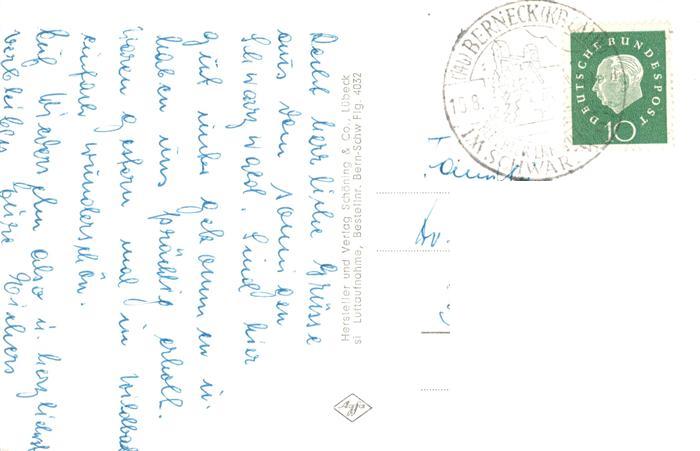 herrliche Grüsse
aus dem sonnigen
Schwarzwald. Sind hier
gut unter gekommen u.
haben uns prächtig erholt.
Waren gestern mal in Wildbad
einfach wunderschön.
Auf Wiedersehn also u. herzlichst
verbleiben
Hersteller und Verlag Schöning & Co., Lübeck
si Luftaufnahme, Bestellnr. Bern-Schw Flg. 4032
Agfa
BERNECK (KR.
IM SCHWAR
DEUTSCHE BUNDESPOST
10
Familie